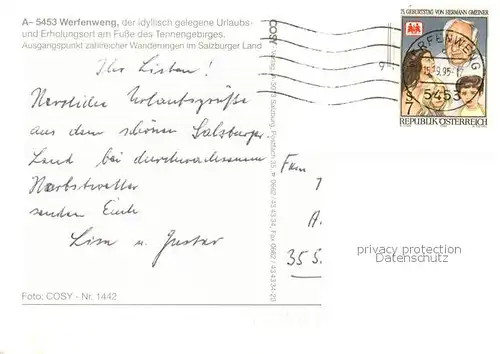 A- 5453 Werfenweng, der idyllisch gelegene Urlaubs-
und Erholungsort am Fuße des Tennengebirges.
Ausgangspunkt zahlreicher Wanderungen im Salzburger Land
Ihr Lieben!
Herzliche Urlaubsgrüße
aus dem schönen Salzburger
Land bei durchwachsenem
Herbstwetter
senden Euch
Lisa u. Gustav
Foto: COSY - Nr. 1442
COSY Verlag, A-5023 Salzburg, Postfach 35, 0662/43 43 34, Fax 0662/43 43 34-20
75. GEBURTSTAG VON HERMANN GMEINER
WERFENWENG
5453
7
REPUBLIK ÖSTERREICH
A.
355
privacy protection
Datenschutz